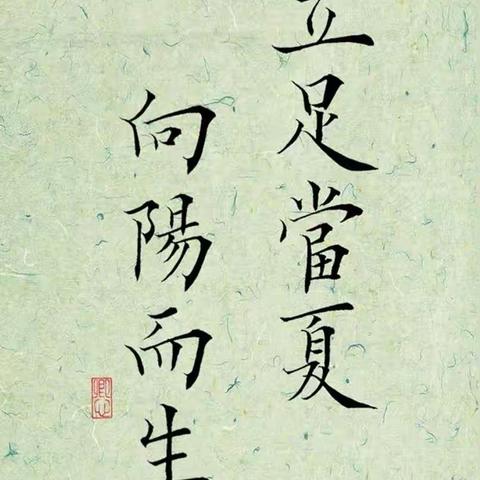 立足當夏
向陽而生